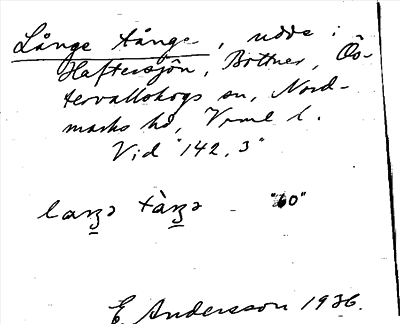 Långe tånge, udde i
Haftersjön, Bottner, Ös-
tervallskogs sn, Nord-
marks hd, Vrml l.
Vid "142,3"
laŋ̱ə tàŋ̱ə - "60"
E. Andersson 1936.